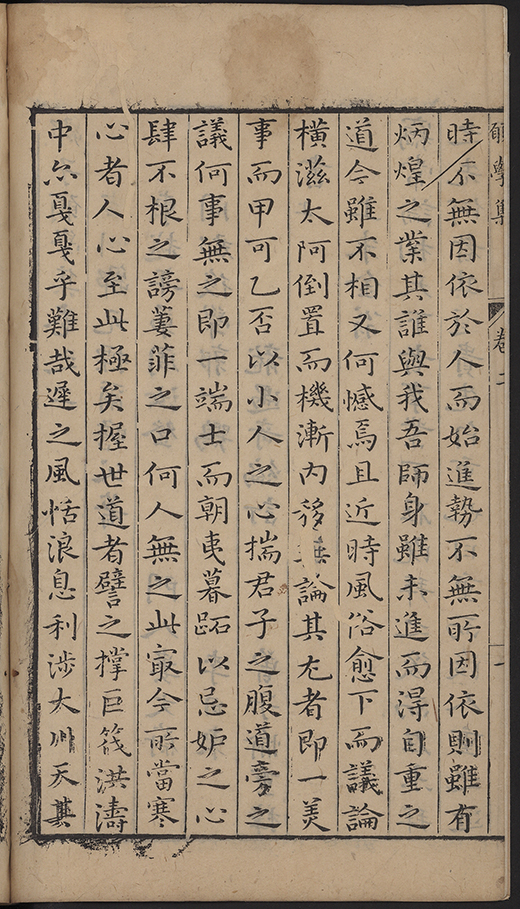 學集 卷二
時不無因依於人而始進勢不無所因依則雖有
炳煌之業其誰與我吾師身雖未進而得自重之
道今雖不相又何憾焉且近時風俗愈下而議論
橫滋太阿倒置而機漸內移無論其尤者即一美
事而甲可乙否以小人之心揣君子之腹道旁之
議何事無之即一端士而朝夷暮跖以忌妒之心
肆不根之謗萋菲之口何人無之此㝡今所當寒
心者人心至此極矣握世道者譬之撑巨筏洪濤
中尒戛戛乎難哉遲之風恬浪息利涉大川天其